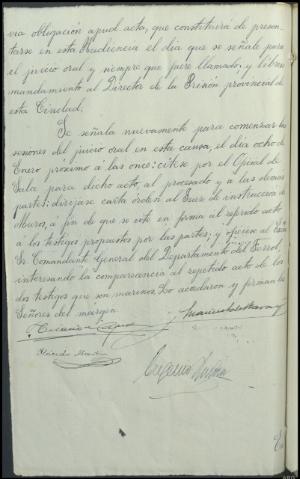 via obligación apud acta, que constituirá de presen-
tarse en esta Audiencia el día que se señale para
el juicio oral y siempre que fuere llamado, y líbrese
mandamiento al Director de la Prisión provincial de
esta Ciudad.
Se señala nuevamente para comenzar las
sesiones del juicio oral en esta causa, el día ocho de
Enero próximo á las once: cítese por el Oficial de
Sala para dicho acto, al procesado y a las demas
partes: dirijase carta órden al Juez de instrucción de
Muros, á fin de que se cite en forma al referido acto
á los testigos propuestos por las partes; y oficien al Exmo
Sr. Comandante General del Departamento del Ferrol,
interesando la comparecencia al repetido acto de los
dos testigos que son marinos. Lo acordaron y firman los
Señores del margen.
Eugenio